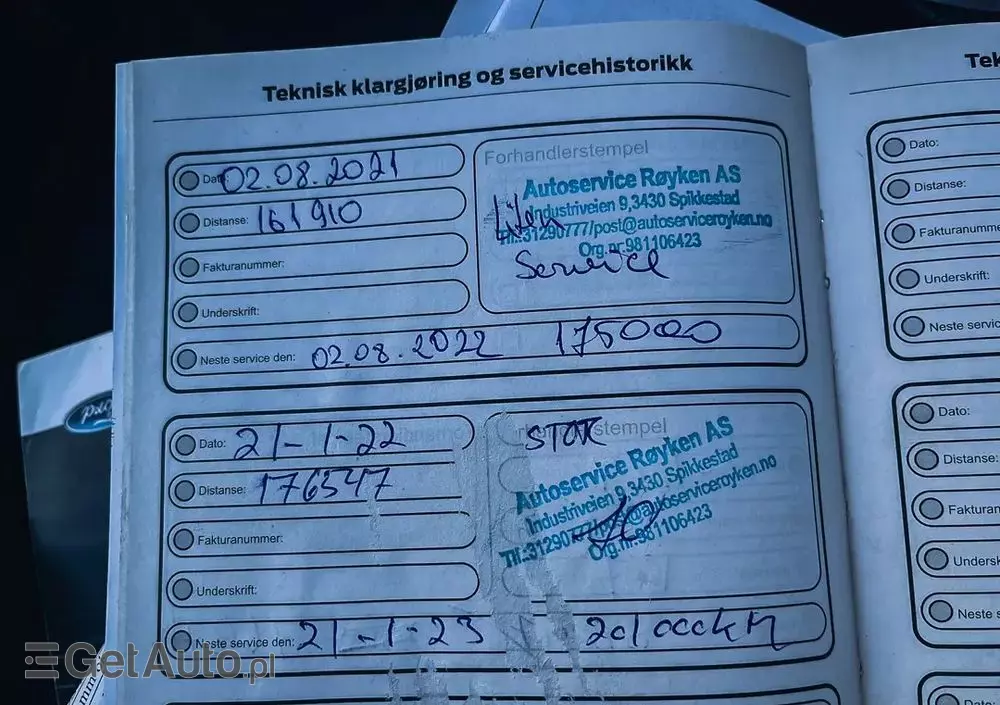 Teknisk klargjøring og servicehistorikk
Tek
Dato: 02.08.2021
Distanse: 161910
Fakturanummer:
Underskrift:
Forhandlerstempel
Autoservice Røyken AS
Industriveien 9,3430 Spikkestad
Tlf.:31290777/post@autoserviceroyken.no
Org.nr.981106423
Liten
Service
Neste service den: 02.08.2022 175000
Dato: 21-1-22
Distanse: 176347
Fakturanummer:
Underskrift:
STOR
stempel
Autoservice Røyken AS
Industriveien 9,3430 Spikkestad
Org.nr.981106423
Neste service den: 21-1-23 201000km
Dato:
Distanse:
Fakturanumme
Underskrift:
Neste servic
Dato:
Distanse:
Fakturan
Undersk
Neste s
Dato:
Ford
GetAuto.pl